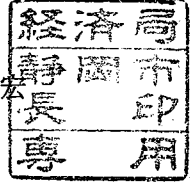 経済局
静岡市
長印
専用
宏